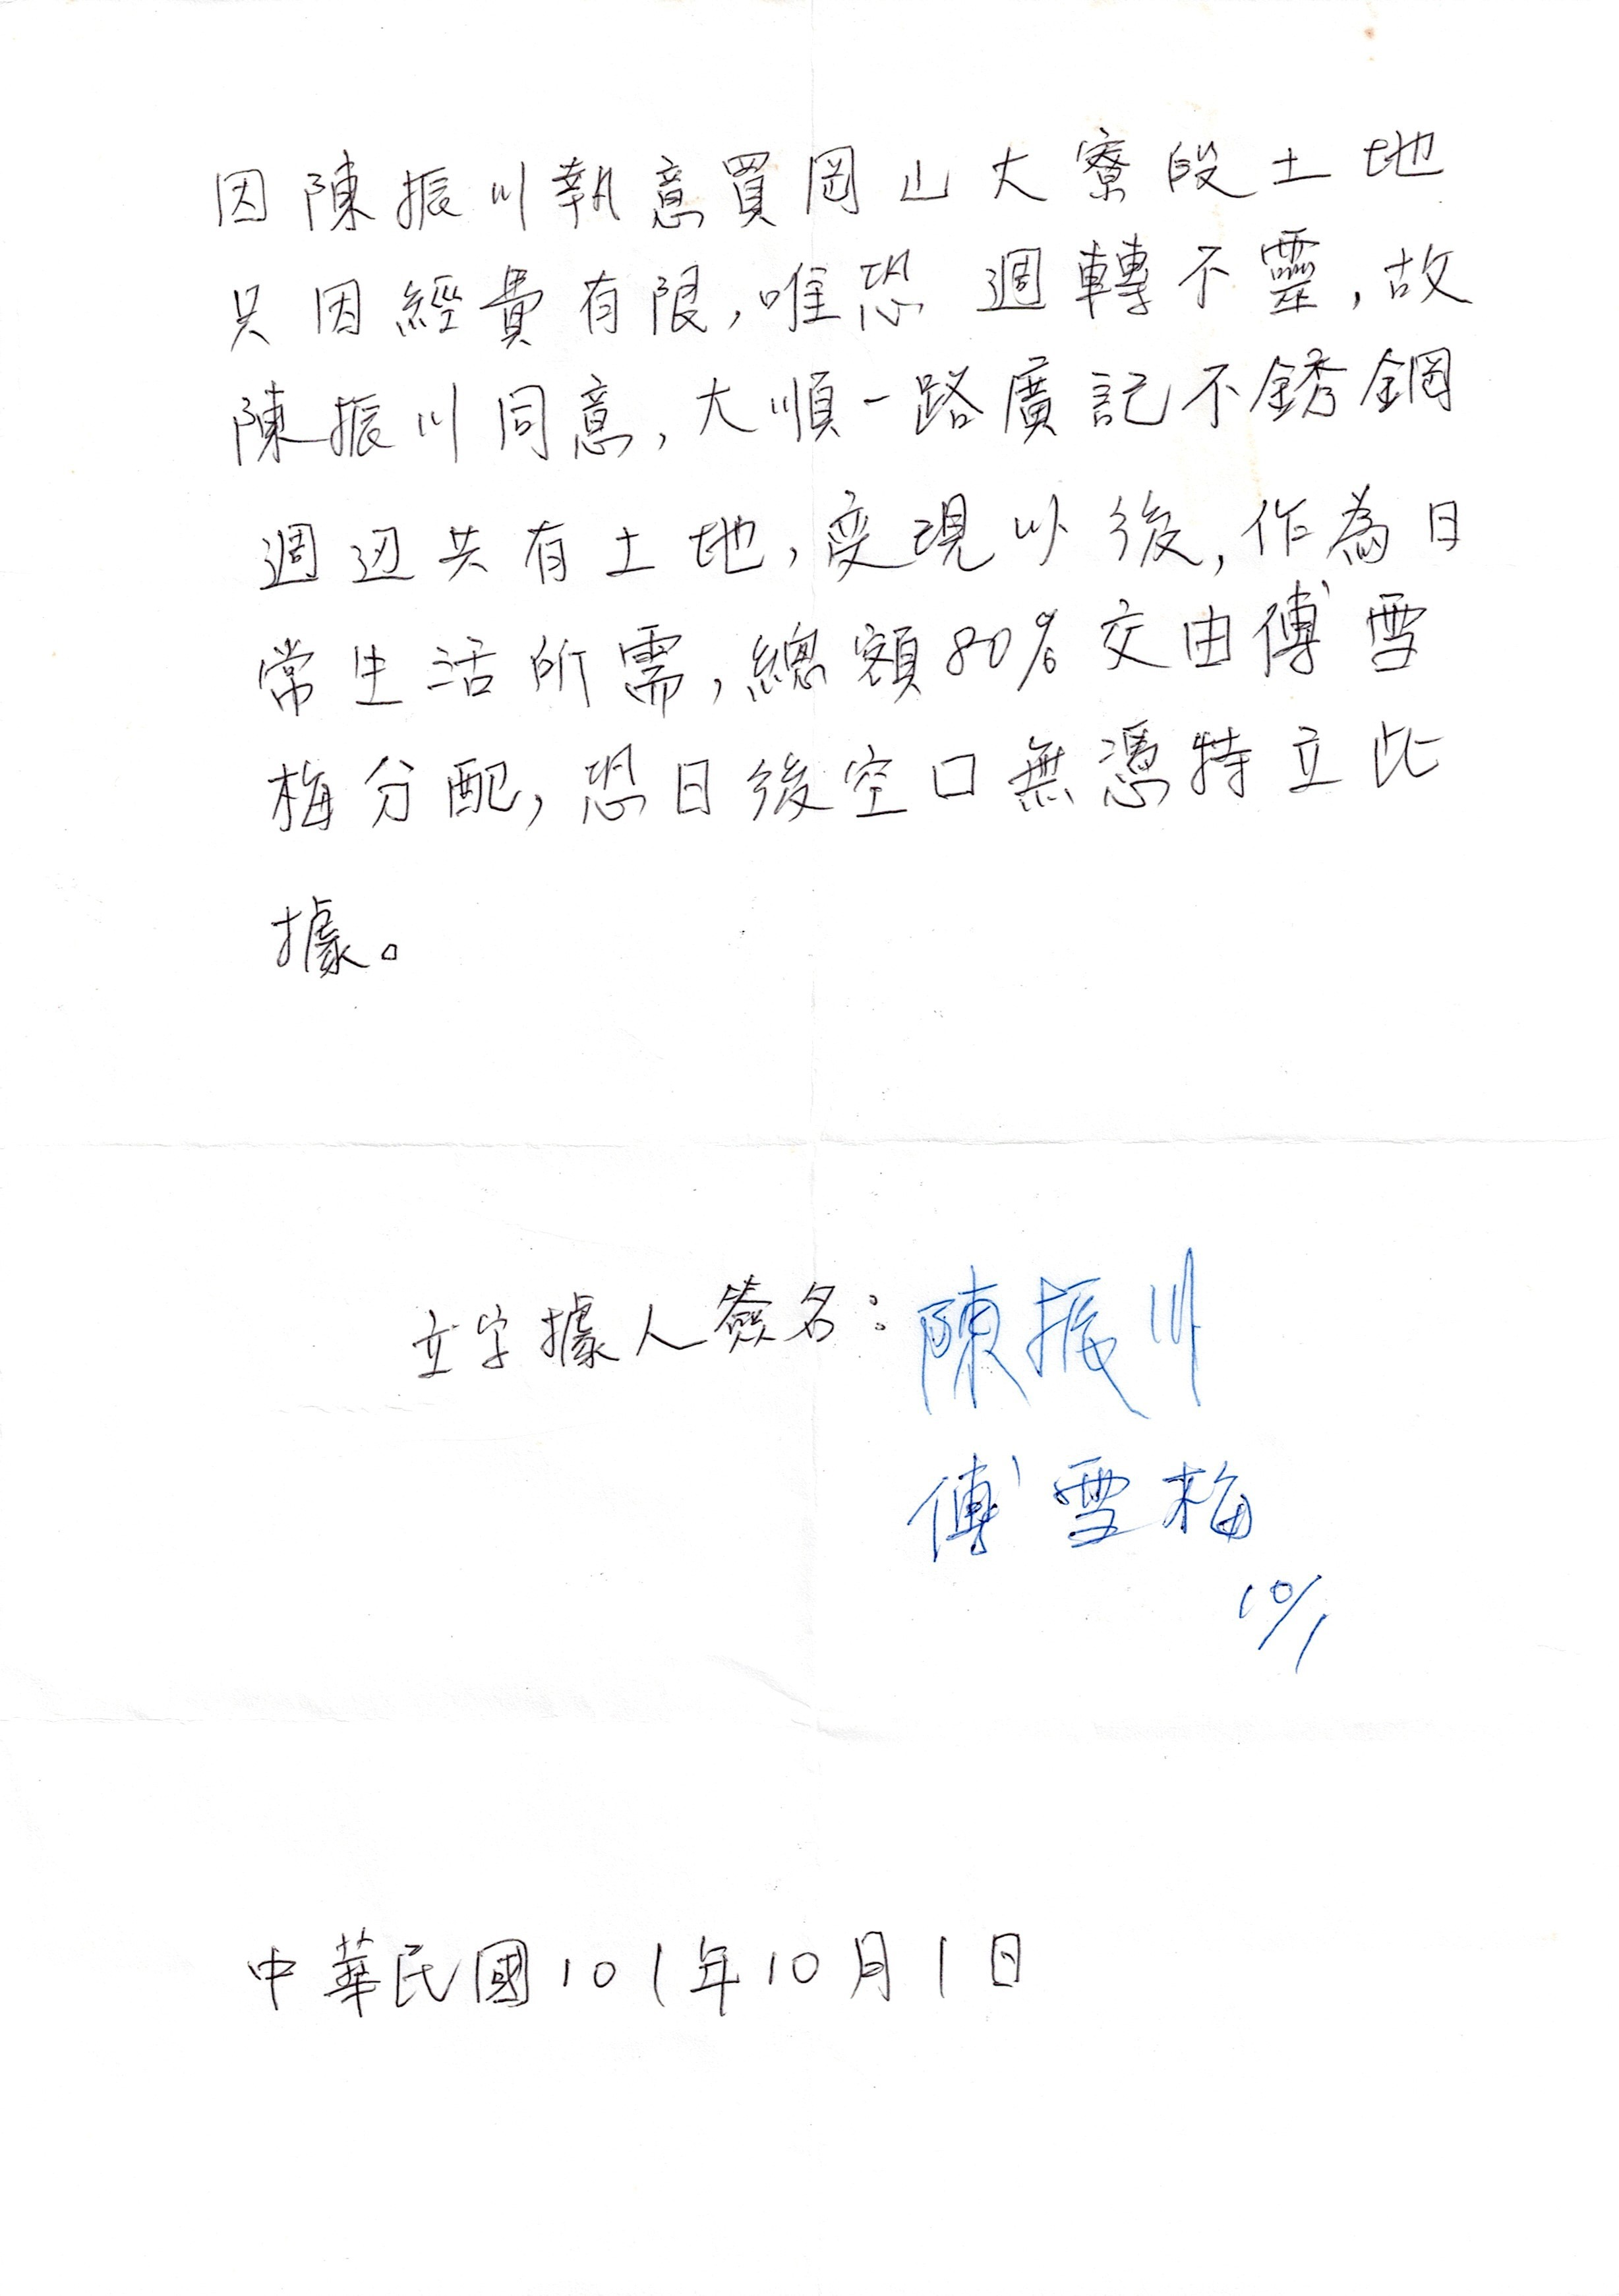 因陳振川執意買岡山大寮段土地
只因經費有限,唯恐週轉不靈,故
陳振川同意,大順一路廣記不銹鋼
週边共有土地,变現以後,作為日
常生活所需,總額80%交由傅雪
梅分配,恐日後空口無憑特立此
據。
立字據人簽名:陳振川
傅雪梅
10/1
中華民國101年10月1日